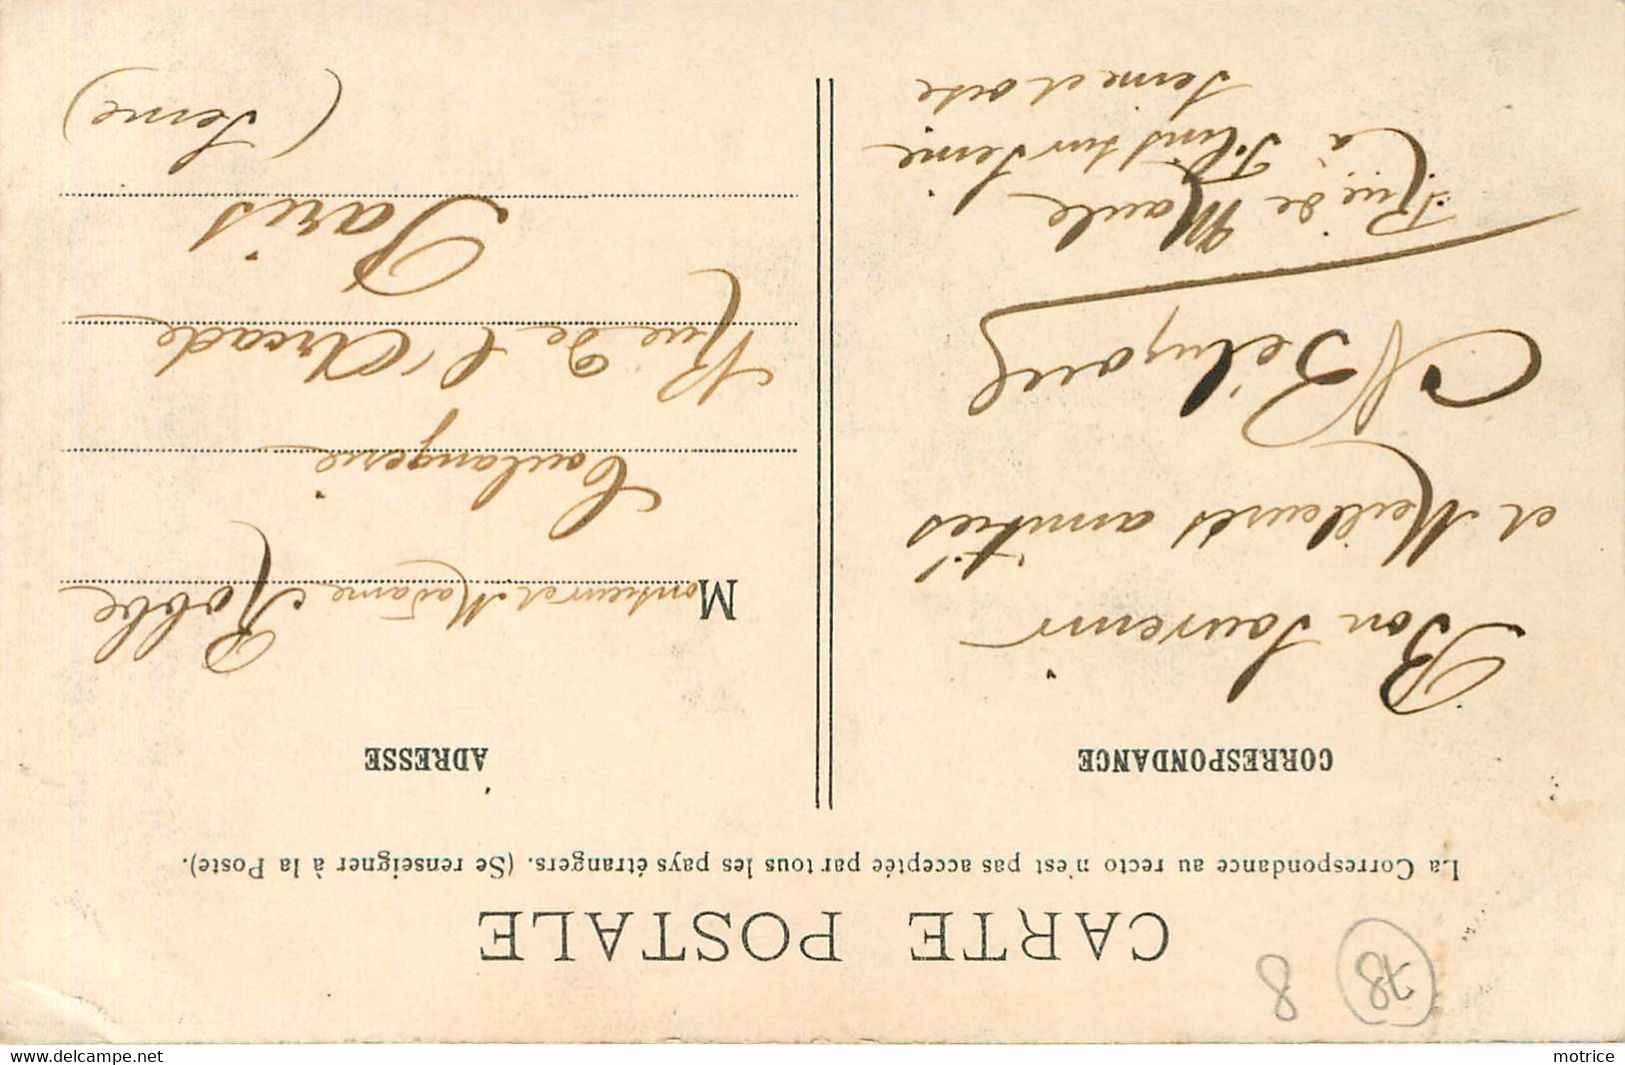 CARTE POSTALE
78
8
La Correspondance au recto n'est pas acceptée par tous les pays étrangers. (Se renseigner à la Poste).
CORRESPONDANCE
Bon Souvenir
et Meilleures amitiés
Rue de Maule
à Flins sur Seine
Seine et oise
ADRESSE
Monsieur et Madame Robbe
Boulangerie
Rue de l'Arcade
Paris
(Seine)
www.delcampe.net
motrice